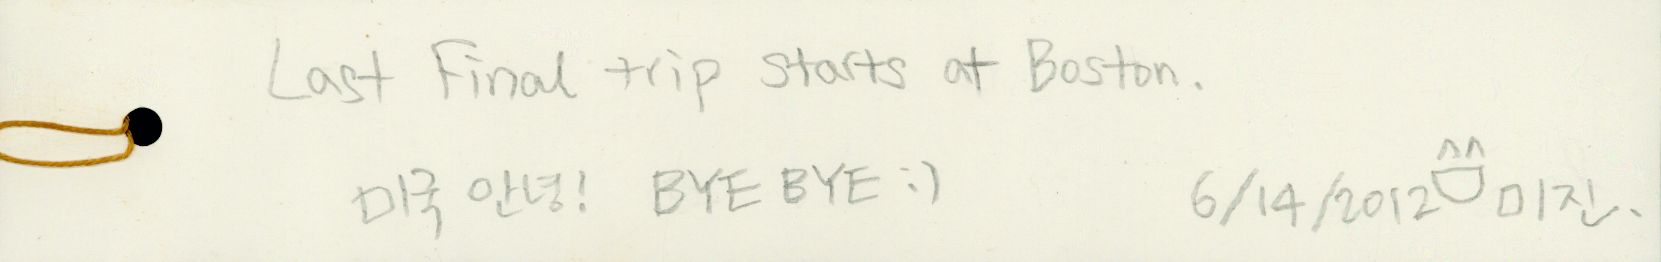 Last Final trip starts at Boston.
미국 안녕! BYE BYE :) 6/14/2012 미진.